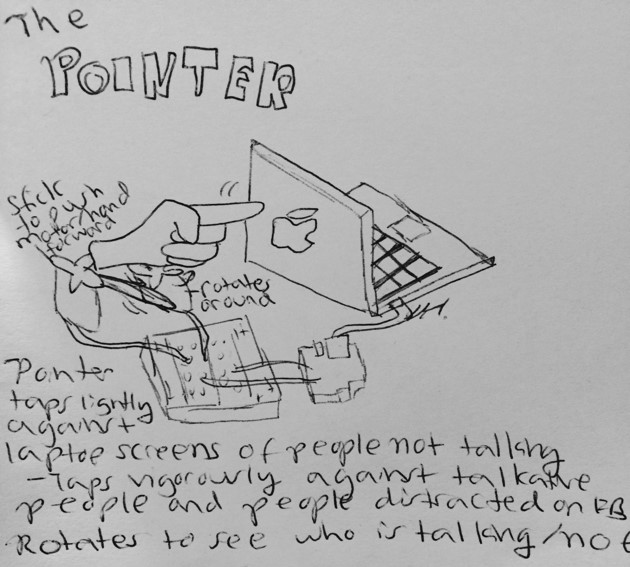 The
POINTER
Stick
to push
motor/hand
forward
rotates
around
Pointer
taps lightly
against
laptop screens of people not talking
- Taps vigorously against talkative
people and people distracted on FB
Rotates to see who is talking/not